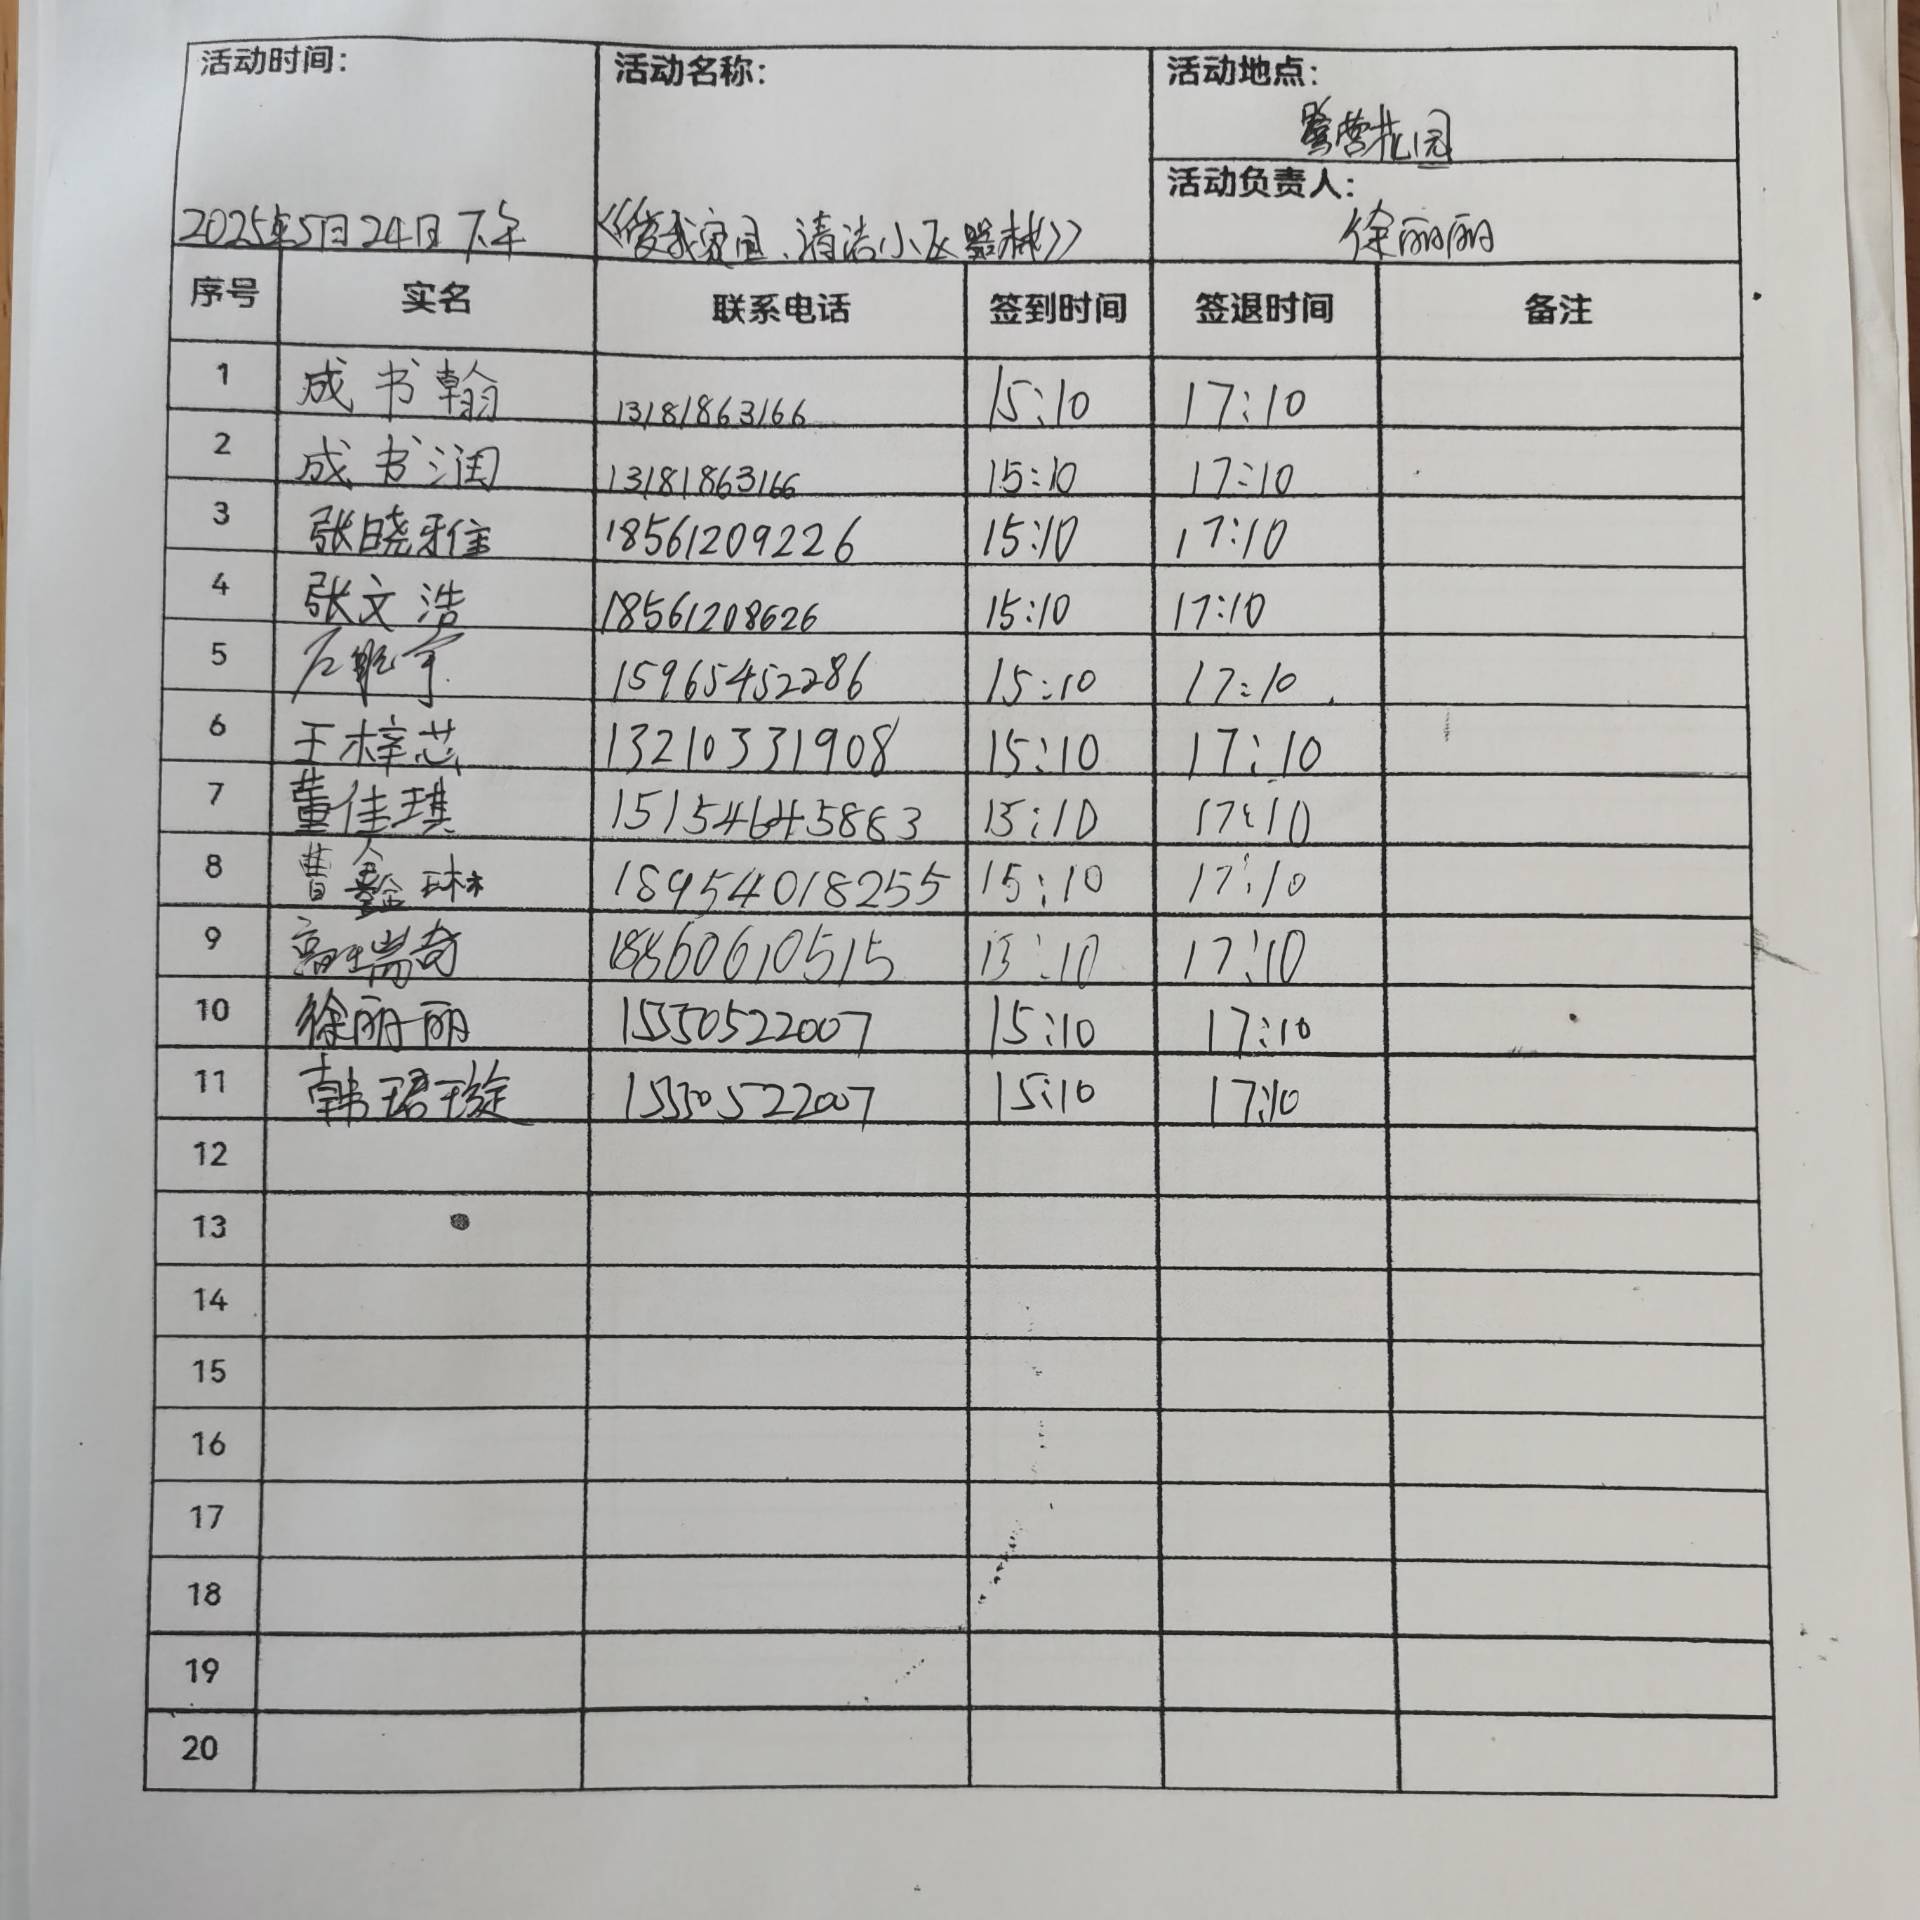 活动时间： 活动名称： 活动地点：
花园
活动负责人：
2025年5月24日下午 清洁小区器材》 徐丽丽
序号 实名 联系电话 签到时间 签退时间 备注
1 成书翰 13181863166 15:10 17:10
2 成书润 13181863166 15:10 17:10
3 张晓雅 18561209226 15:10 17:10
4 张文浩 18561208626 15:10 17:10
5 15965452286 15:10 17:10
6 王梓芯 13210331908 15:10 17:10
7 董佳琪 15154645883 15:10 17:10
8 曹鑫琳 18954018255 15:10 17:10
9 高瑞奇 15:10 17:10
10 徐丽丽 15550522007 15:10 17:10
11 韩珺璇 15550522007 15:10 17:10
12
13
14
15
16
17
18
19
20